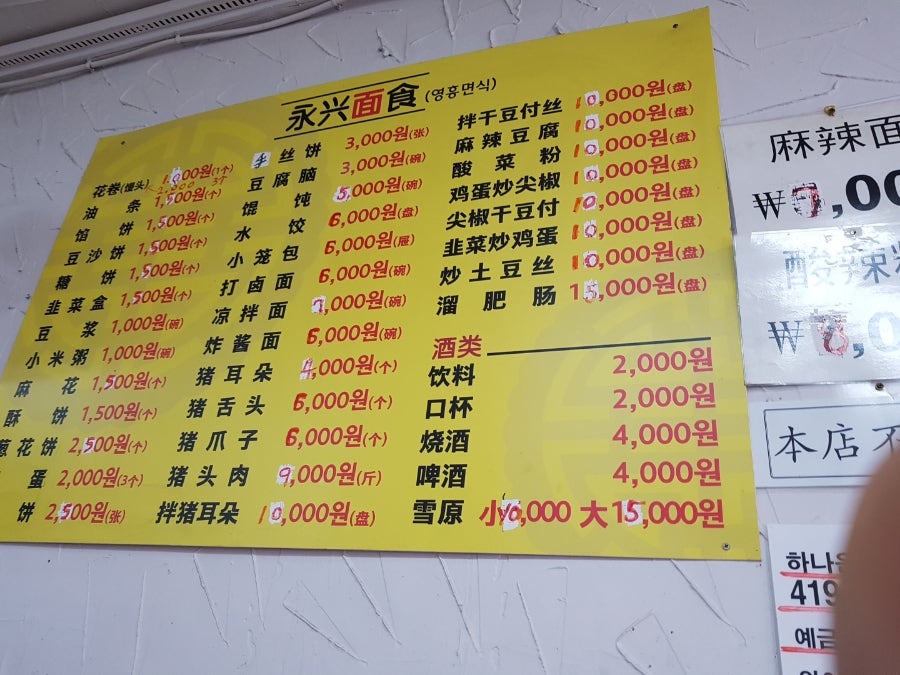 永兴面食 (영흥면식)
花卷(馒头) 1,000원(1个)
2,000 3个
油条 1,500원(个)
馅饼 1,500원(个)
豆沙饼 1,500원(个)
糖饼 1,500원(个)
韭菜盒 1,500원(个)
豆浆 1,000원(碗)
小米粥 1,000원(碗)
麻花 1,500원(个)
酥饼 1,500원(个)
葱花饼 2,500원(个)
蛋 2,000원(3个)
饼 2,500원(张)
手丝饼 3,000원(张)
豆腐脑 3,000원(碗)
馄饨 5,000원(碗)
水饺 6,000원(盘)
小笼包 6,000원(屉)
打卤面 6,000원(碗)
凉拌面 7,000원(碗)
炸酱面 6,000원(碗)
猪耳朵 4,000원(个)
猪舌头 6,000원(个)
猪爪子 6,000원(个)
猪头肉 9,000원(斤)
拌猪耳朵 10,000원(盘)
拌干豆付丝 10,000원(盘)
麻辣豆腐 10,000원(盘)
酸菜粉 10,000원(盘)
鸡蛋炒尖椒 10,000원(盘)
尖椒干豆付 10,000원(盘)
韭菜炒鸡蛋 10,000원(盘)
炒土豆丝 10,000원(盘)
溜肥肠 15,000원(盘)
酒类
饮料 2,000원
口杯 2,000원
烧酒 4,000원
啤酒 4,000원
雪原 小10,000 大15,000원
麻辣面
₩7,00
酸辣粉
₩ ,0
本店不
하나은
419
예금